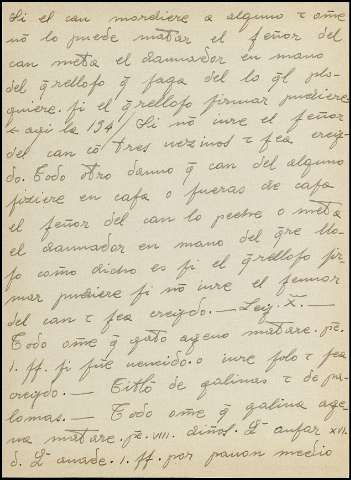 Si el can mordiere a alguno τ om̃e
nõ lo puede matar el ſeñor del
can meta el dannador en mano
del q̃relloſo q̃ faga del lo q̃l pla-
quiere. ſi el q̃relloſo firmar pudiere
aqi la 134/ Si nõ iure el ſeñor
del can cõ tres uezinos τ ſea creẏ-
do. Todo otro danno q̃ can del alguno
fiziere en caſa o fueras de caſa
el ſeñor del can lo peche o meta
el dannador en mano del q̃re llo-
ſo como dicho es ſi el q̃relloſo fir-
mar pudiere ſi nõ iure el ſennor
del can τ ſea creẏdo. — Leẏ. X. —
Todo om̃e q̃ gato ageno matare. pẽ.
1. ff. ſi fue uencido. o iure ſolo τ ſea
creẏdo. — Titlo de galinas τ de pa-
lomas. — Todo om̃e q̃ galina age-
na matare. pẽ. VIII. diños. Lᵃ anſar XII.
d. Lᵃ anade. 1. ff. por pauon medio